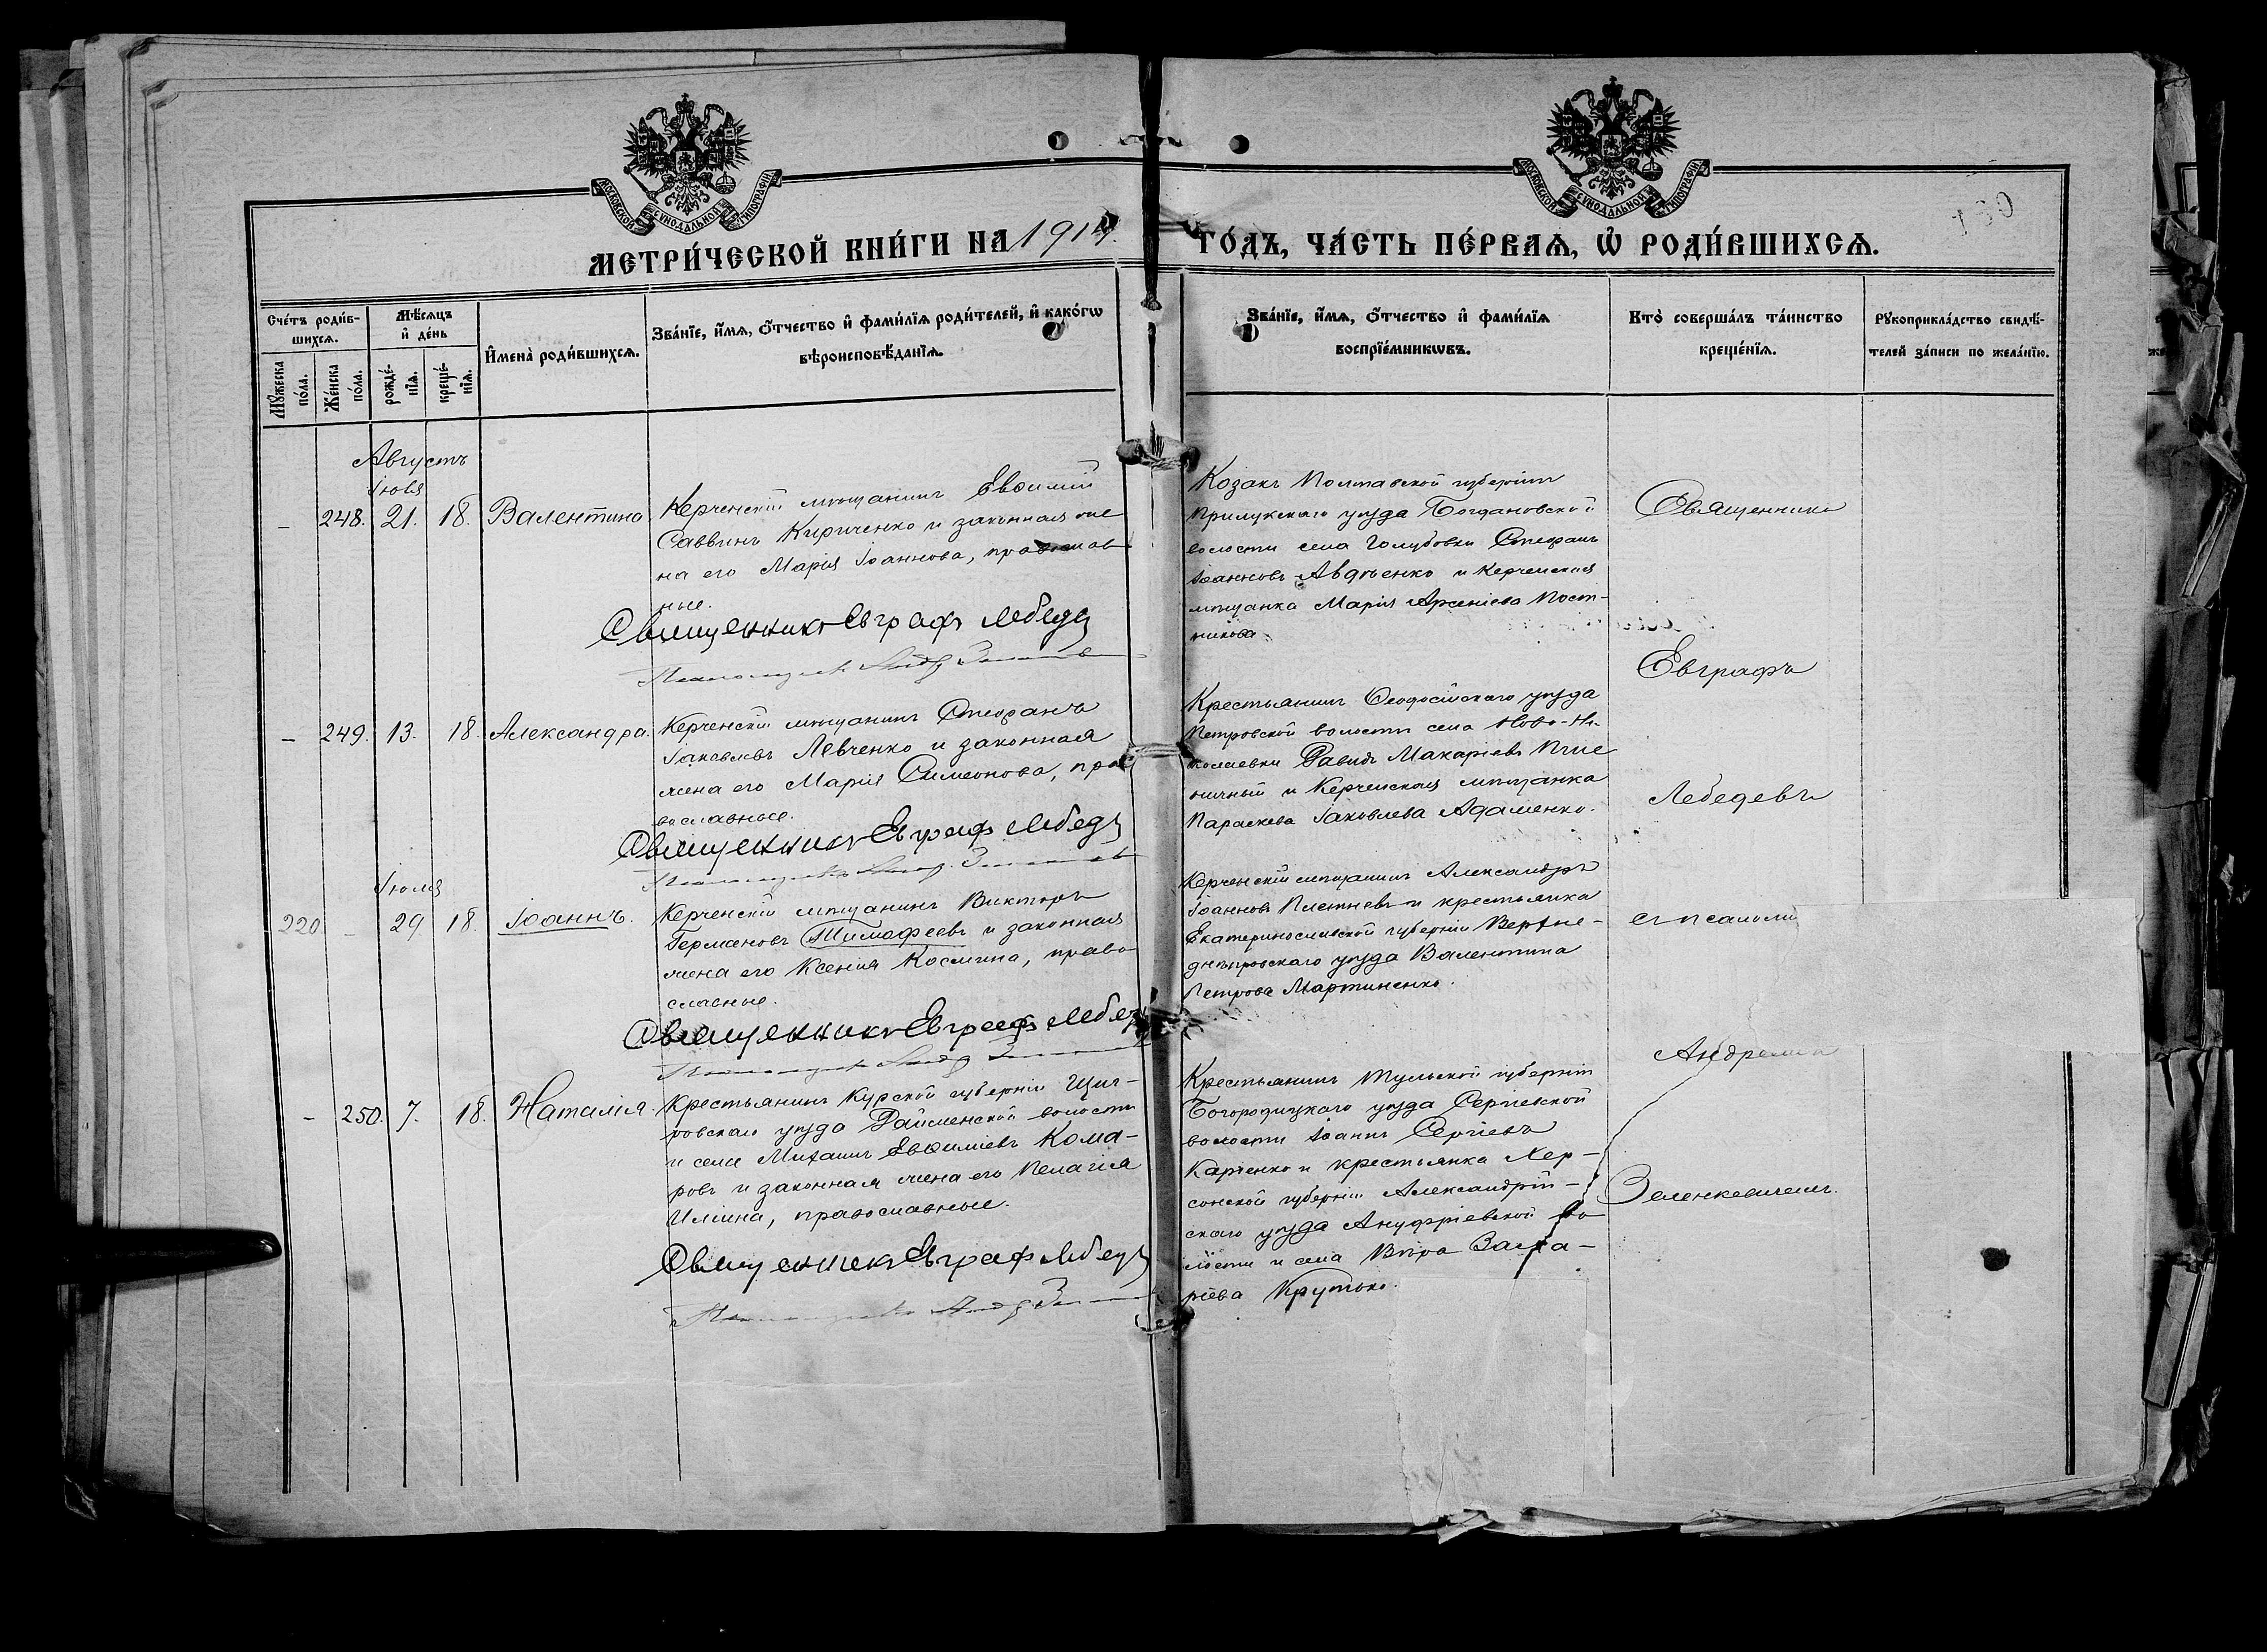 МОСКОВСКОЙ СѴНОДАЛЬНОЙ ТИПОГРАФІИ
МОСКОВСКОЙ СѴНОДАЛЬНОЙ ТИПОГРАФІИ
МЕТРИ́ЧЕСКОЙ КНИ́ГИ НА 1914.
ГО́ДЪ, ЧА́СТЬ ПЕ́РВАѦ, Ѡ҆ РОДИ́ВШИХСѦ.
Сче́тъ роди́в-
шихсѧ.
Мꙋ́жеска
по́ла.
Же́нска
по́ла.
Мѣ́сѧцъ
и҆ де́нь
рожде́-
нїѧ.
креще́-
нїѧ.
И҆мена̀ роди́вшихсѧ.
Зва́нїе, и҆́мѧ, ѻ҆́тчество и҆ фами́лїѧ роди́телей, и҆ како́гѡ
вѣроисповѣ́данїѧ.
Зва́нїе, и҆́мѧ, ѻ҆́тчество и҆ фами́лїѧ
воспрїе́мникѡвъ.
Кто̀ соверша́лъ та́инство
креще́нїѧ.
Рꙋкоприкла́дство свидѣ́-
телей за́писи по жела́нїю.
Августъ
Іюля
– 248. 21. 18. Валентина
Керченскій мѣщанинъ Евѳимій
Саввинъ Кириченко и законная же
на его Марія Іоаннова, православ
ные.
Священникъ Евграфъ Лебедѣ
Козакъ Полтавской губерніи
Прилукскаго уѣзда Богдановской
волости села Голубовки Стефанъ
Іоанновъ Авдѣенко и Керченская
мѣщанка Марія Арсеніева Пост-
никова.
Священникъ
Евграфъ
– 249. 13. 18. Александра.
Керченскій мѣщанинъ Стефанъ
Іаковлевъ Левченко и законная
жена его Марія Симеонова, пра
вославные.
Священникъ Евграфъ Лебедѣ
Крестьянинъ Ѳеодосійскаго уѣзда
Петровской волости села Ново-Ни-
колаевки Давидъ Макаріевъ Пше
ничный и Керченская мѣщанка
Параскева Іаковлева Адаменко.
Лебедевъ
Іюля
220 – 29 18. Іоаннъ.
Керченскій мѣщанинъ Викторъ
Германовъ Тимофеевъ и законная
жена его Ксенія Космина, право
славные.
Священникъ Евграфъ Лебед
Керченскій мѣщанинъ Александръ
Іоанновъ Плетневъ и крестьянка
Екатеринославской губерніи Верхне-
днѣпровскаго уѣзда Валентина
Петрова Мартиненко.
съ псалом
Андреемъ
– 250. 7. 18. Наталія.
Крестьянинъ Курской губерніи Щиг-
ровскаго уѣзда волости
и села Михаилъ Евѳиміевъ Кома-
ровъ и законная жена его Пелагія
Иліина, православные.
Священникъ Евграфъ Лебедѣ
Крестьянинъ Тульской губерніи
Богородицкаго уѣзда Сергіевской
волости Іоаннъ Сергіевъ
Карпенко и крестьянка Хер-
сонской губерніи Александрій-
скаго уѣзда Ануфріевской во
лости и села Вѣра Заха-
ріева Крутько.
Зеленкевичемъ.